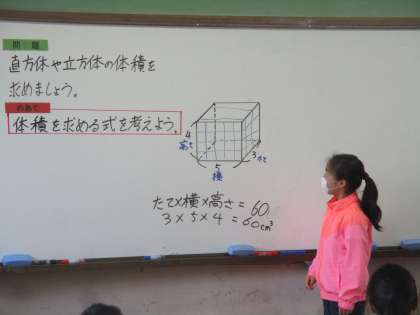 問題
直方体や立方体の体積を
求めましょう。
めあて
体積を求める式を考えよう。
4
高さ
3 たて
5
横
たて×横×高さ = 60
3 × 5 × 4 = 60cm³